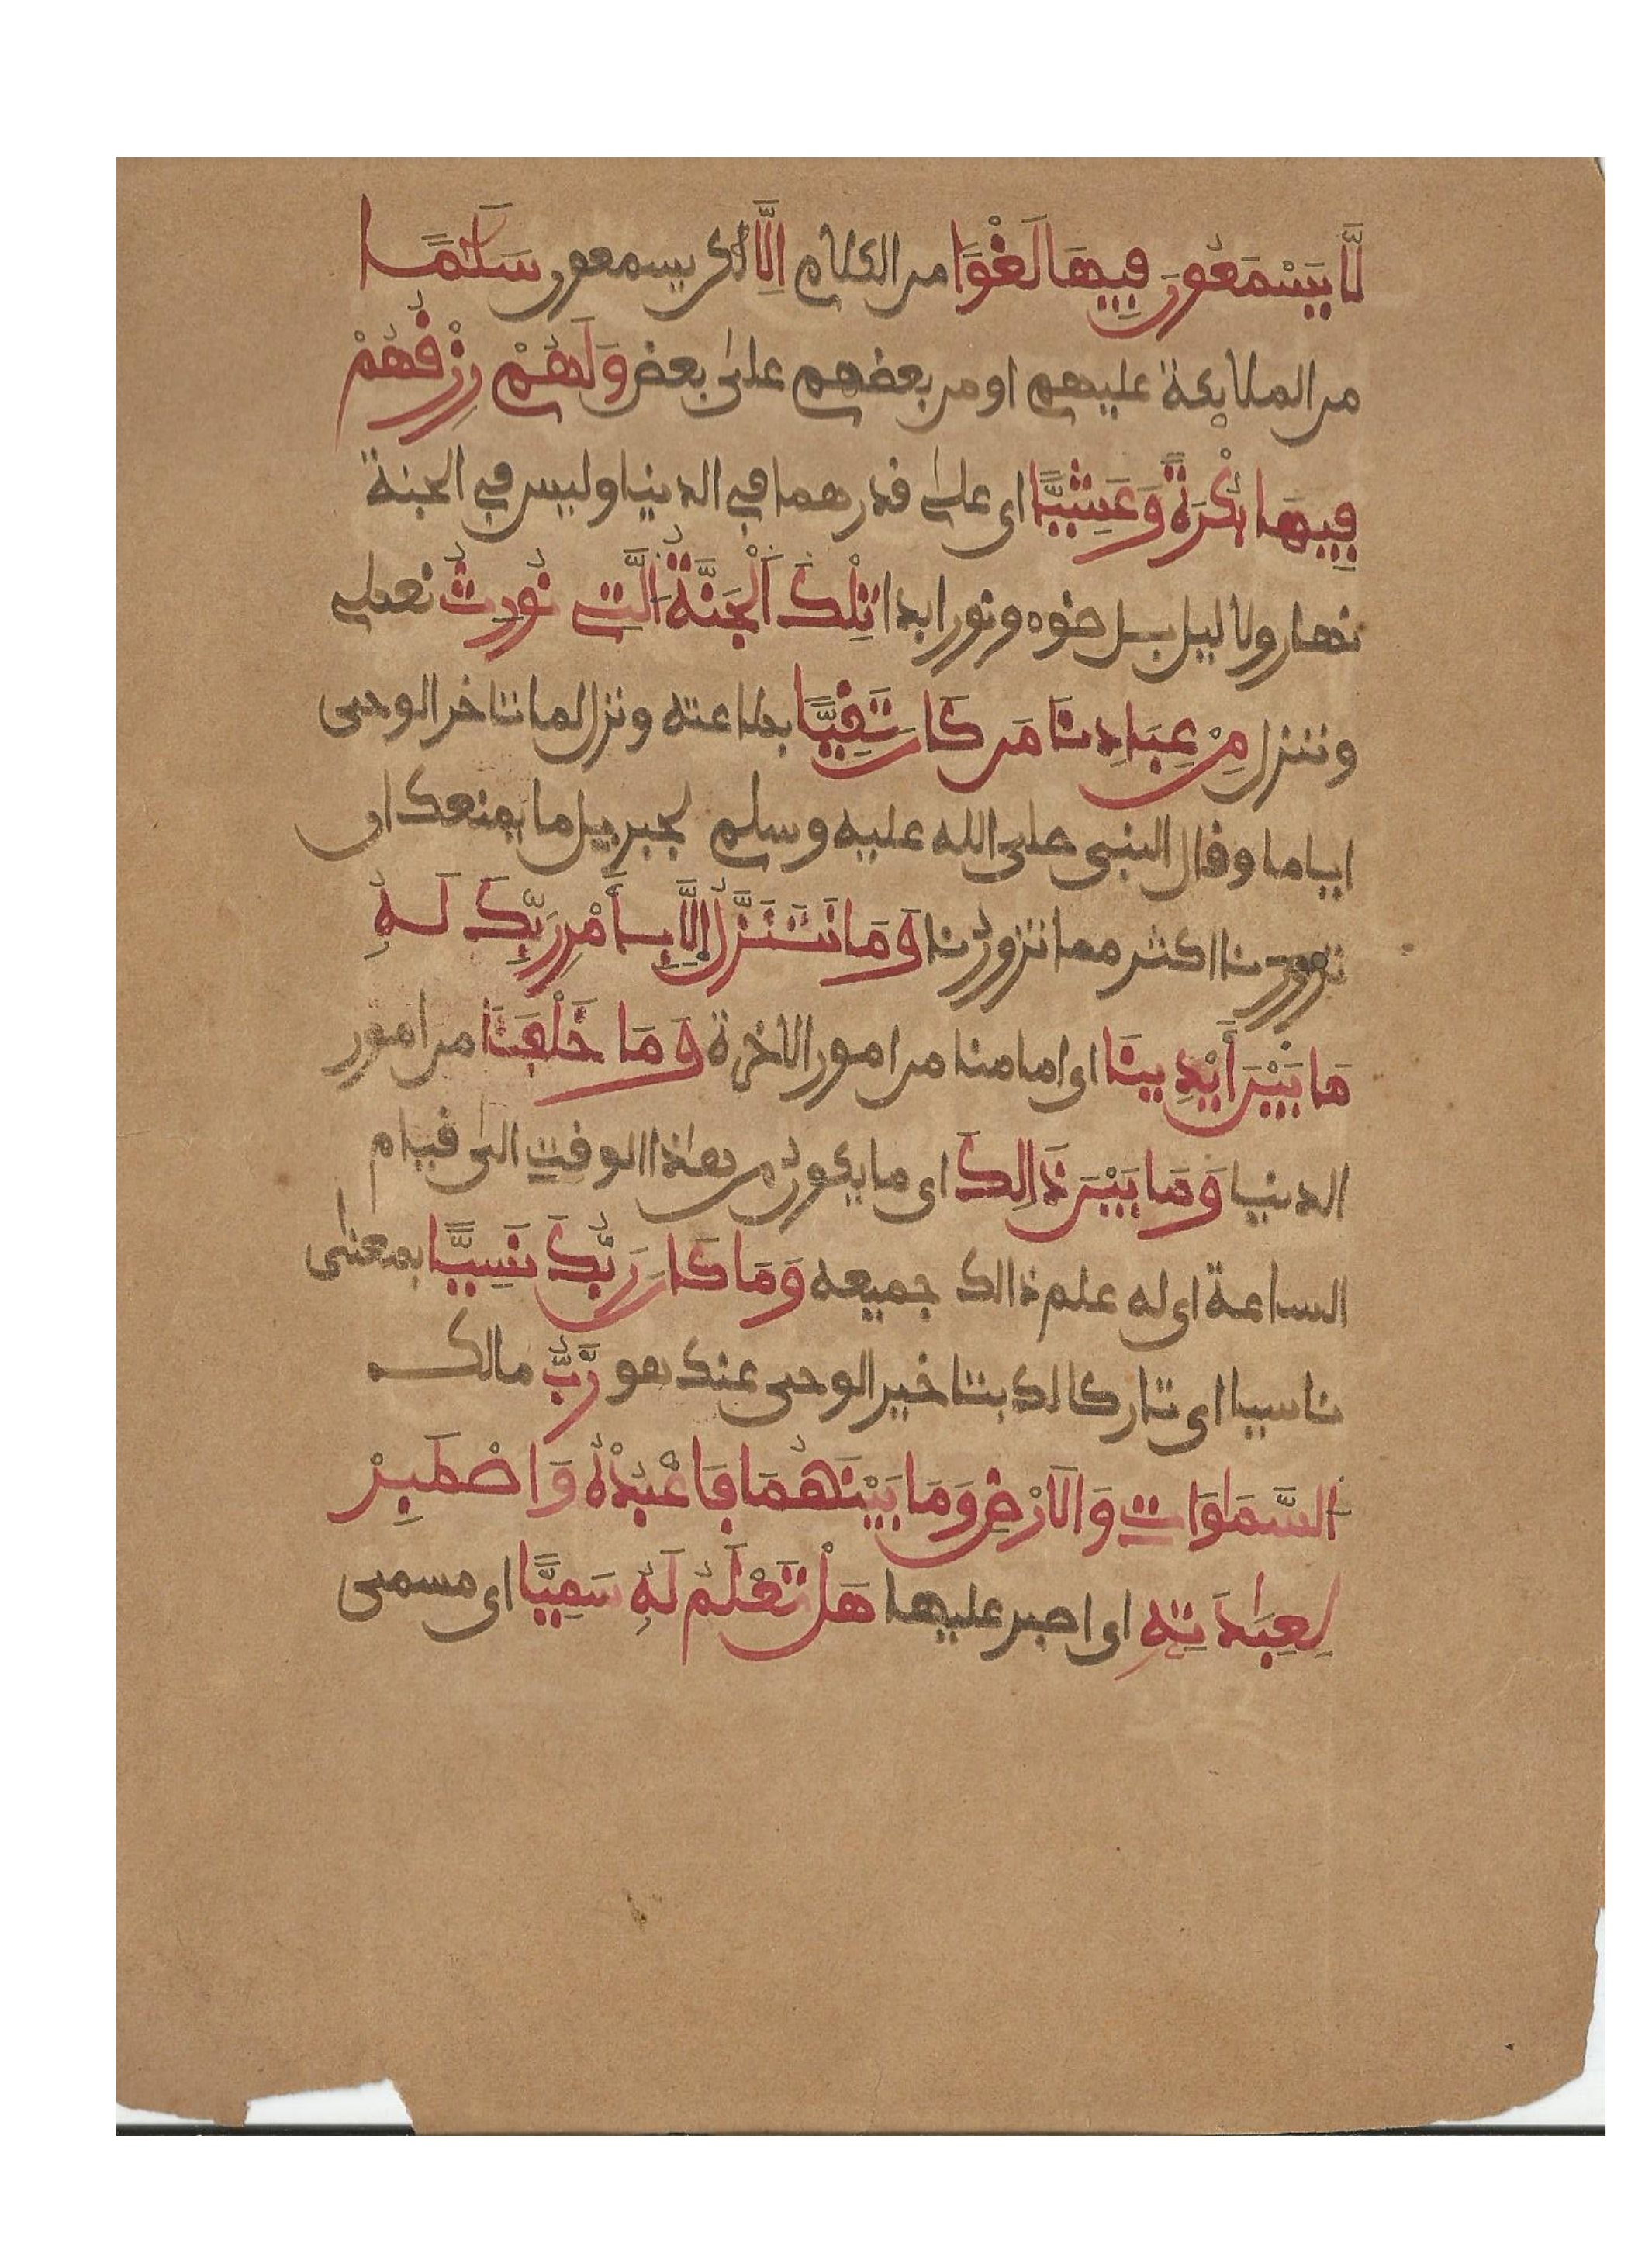 لَّا يَسْمَعُونَ فِيهَا لَغْوًا من الكلام إِلَّا لكن يسمعون سَلَٰمًا
من الملايكة عليهم او من بعضهم على بعض وَلَهُمْ رِزْقُهُمْ
فِيهَا بُكْرَةً وَعَشِيًّا اى على قدرهما في الدنيا وليس في الجنة
نهار ولا ليل بل ضوء ونور ابدا تِلْكَ اَلْجَنَّةُ اَلَّتِي نُورِثُ نعطي
وننزل مِنْ عِبَادِنَا مَن كَانَ تَقِيًّا بطاعته ونزل لما تاخر الوحى
اياما وقال النبى صلى الله عليه وسلم لجبريل ما يمنعك ان
تزورنا اكثر مما تزورنا وَمَا نَتَنَزَّلُ إِلَّا بِأَمْرِ رَبِّكَ لَهُ
مَا بَيْنَ أَيْدِينَا اى امامنا من امور الاخرة وَمَا خَلْفَنَا من امور
الدنيا وَمَا بَيْنَ ذَالِكَ اى ما يكون من هٰذا الوقت الى قيام
الساعة اى له علم ذالك جميعه وَمَا كَانَ رَبُّكَ نَسِيًّا بمعنى
ناسيا اى تاركا لك بتاخير الوحى عنك هو رَبُّ مالك
اَلسَّمَٰوَاتِ وَالَارْضِ وَمَا بَيْنَهُمَا فَاعْبُدْهُ وَاصْطَبِرْ
لِعِبَٰدَتِهِ اى اصبر عليها هَلْ تَعْلَمُ لَهُ سَمِيًّا اى مسمى